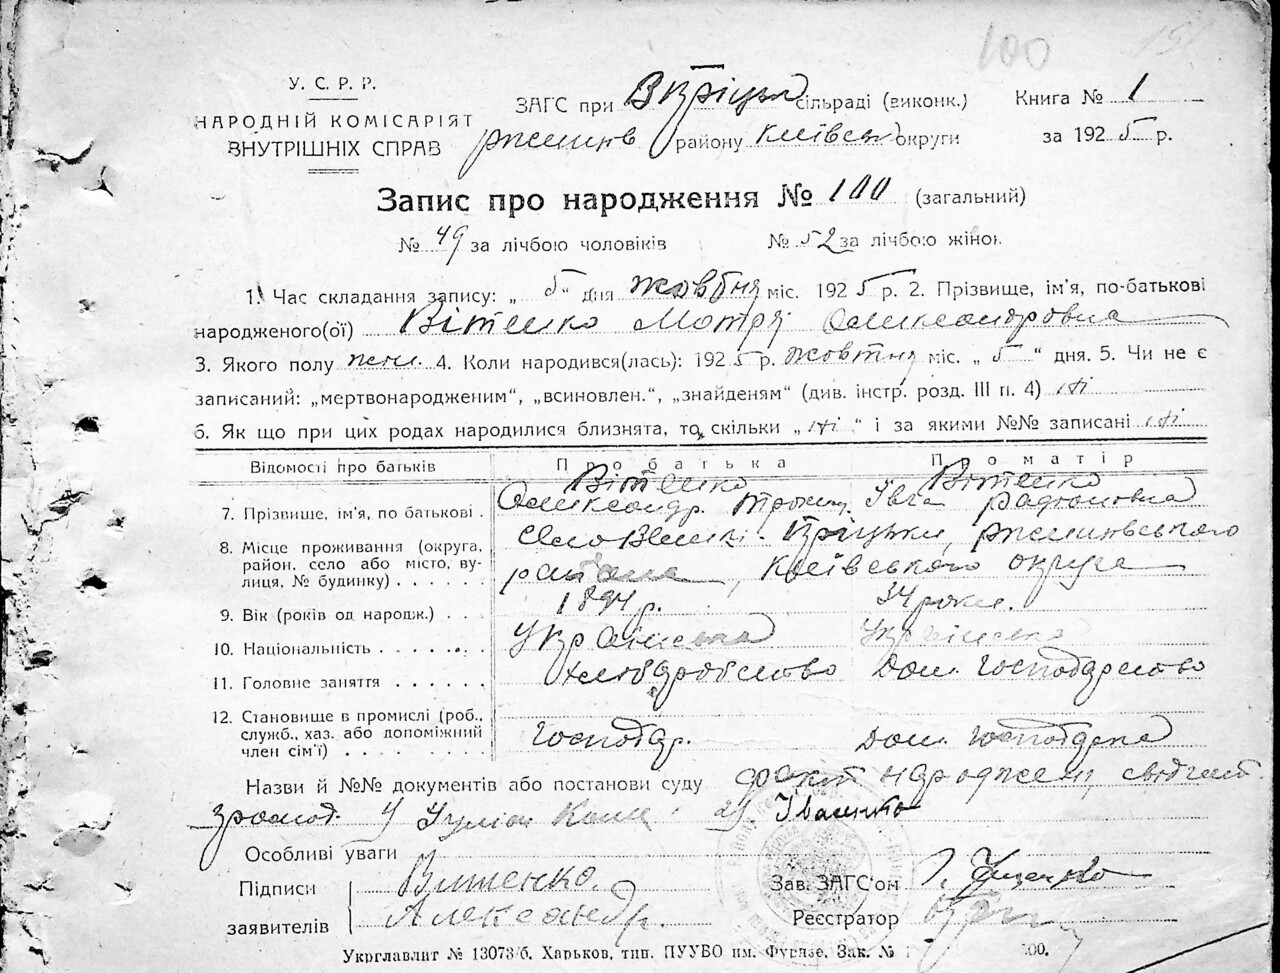 100
У. С. Р. Р.
НАРОДНІЙ КОМІСАРІЯТ
ВНУТРІШНІХ СПРАВ
ЗАГС при В Кріцькій сільраді (виконк.)
Книга № 1
району Київськ округи
за 1925 р.
Запис про народження № 100 (загальний)
№ 49 за лічбою чоловіків № 52 за лічбою жінок
1. Час складання запису: „ 5 “ дня жовтня міс. 1925 р. 2. Прізвище, ім'я, по-батькові
народженого(ої) Вітенко Мотря Олександровна
3. Якого полу жін. 4. Коли народився(лась): 1925 р. жовтня міс. „ 5 “ дня. 5. Чи не є
записаний: „мертвонародженим“, „всиновлен.“, „знайденям“ (див. інстр. розд. III п. 4) ні
6. Як що при цих родах народилися близнята, то скільки „ ні “ і за якими №№ записані ні
Відомості про батьків Про батька Про матір
Вітенко Вітенко
7. Прізвище, ім'я, по батькові . Олександр. Трохим. Івга Радіоновна
8. Місце проживання (округа,
район, село або місто, ву-
лиця, № будинку) . . . . .
Село Великі-Кріцьки,
района, Київського округа
9. Вік (років од народж.) . . . 1894 р. 34 роки.
10. Національність . . . . . . . Українська Українська
11. Головне заняття . . . . . . Хліборобство Дом. господарство
12. Становище в промислі (роб.,
служб., хаз. або допоміжний
член сім'ї) . . . . . . . .
Господар. Дом. господарка
Назви й №№ документів або постанови суду факт народжен.
Іваненко
Особливі уваги
Підписи
заявителів
Витенко.
Александр.
Зав. ЗАГС'ом
Реєстратор
Укрглавліт № 13073/б. Харьков, тип. ПУУБО им. Фрунзе. Зак. №